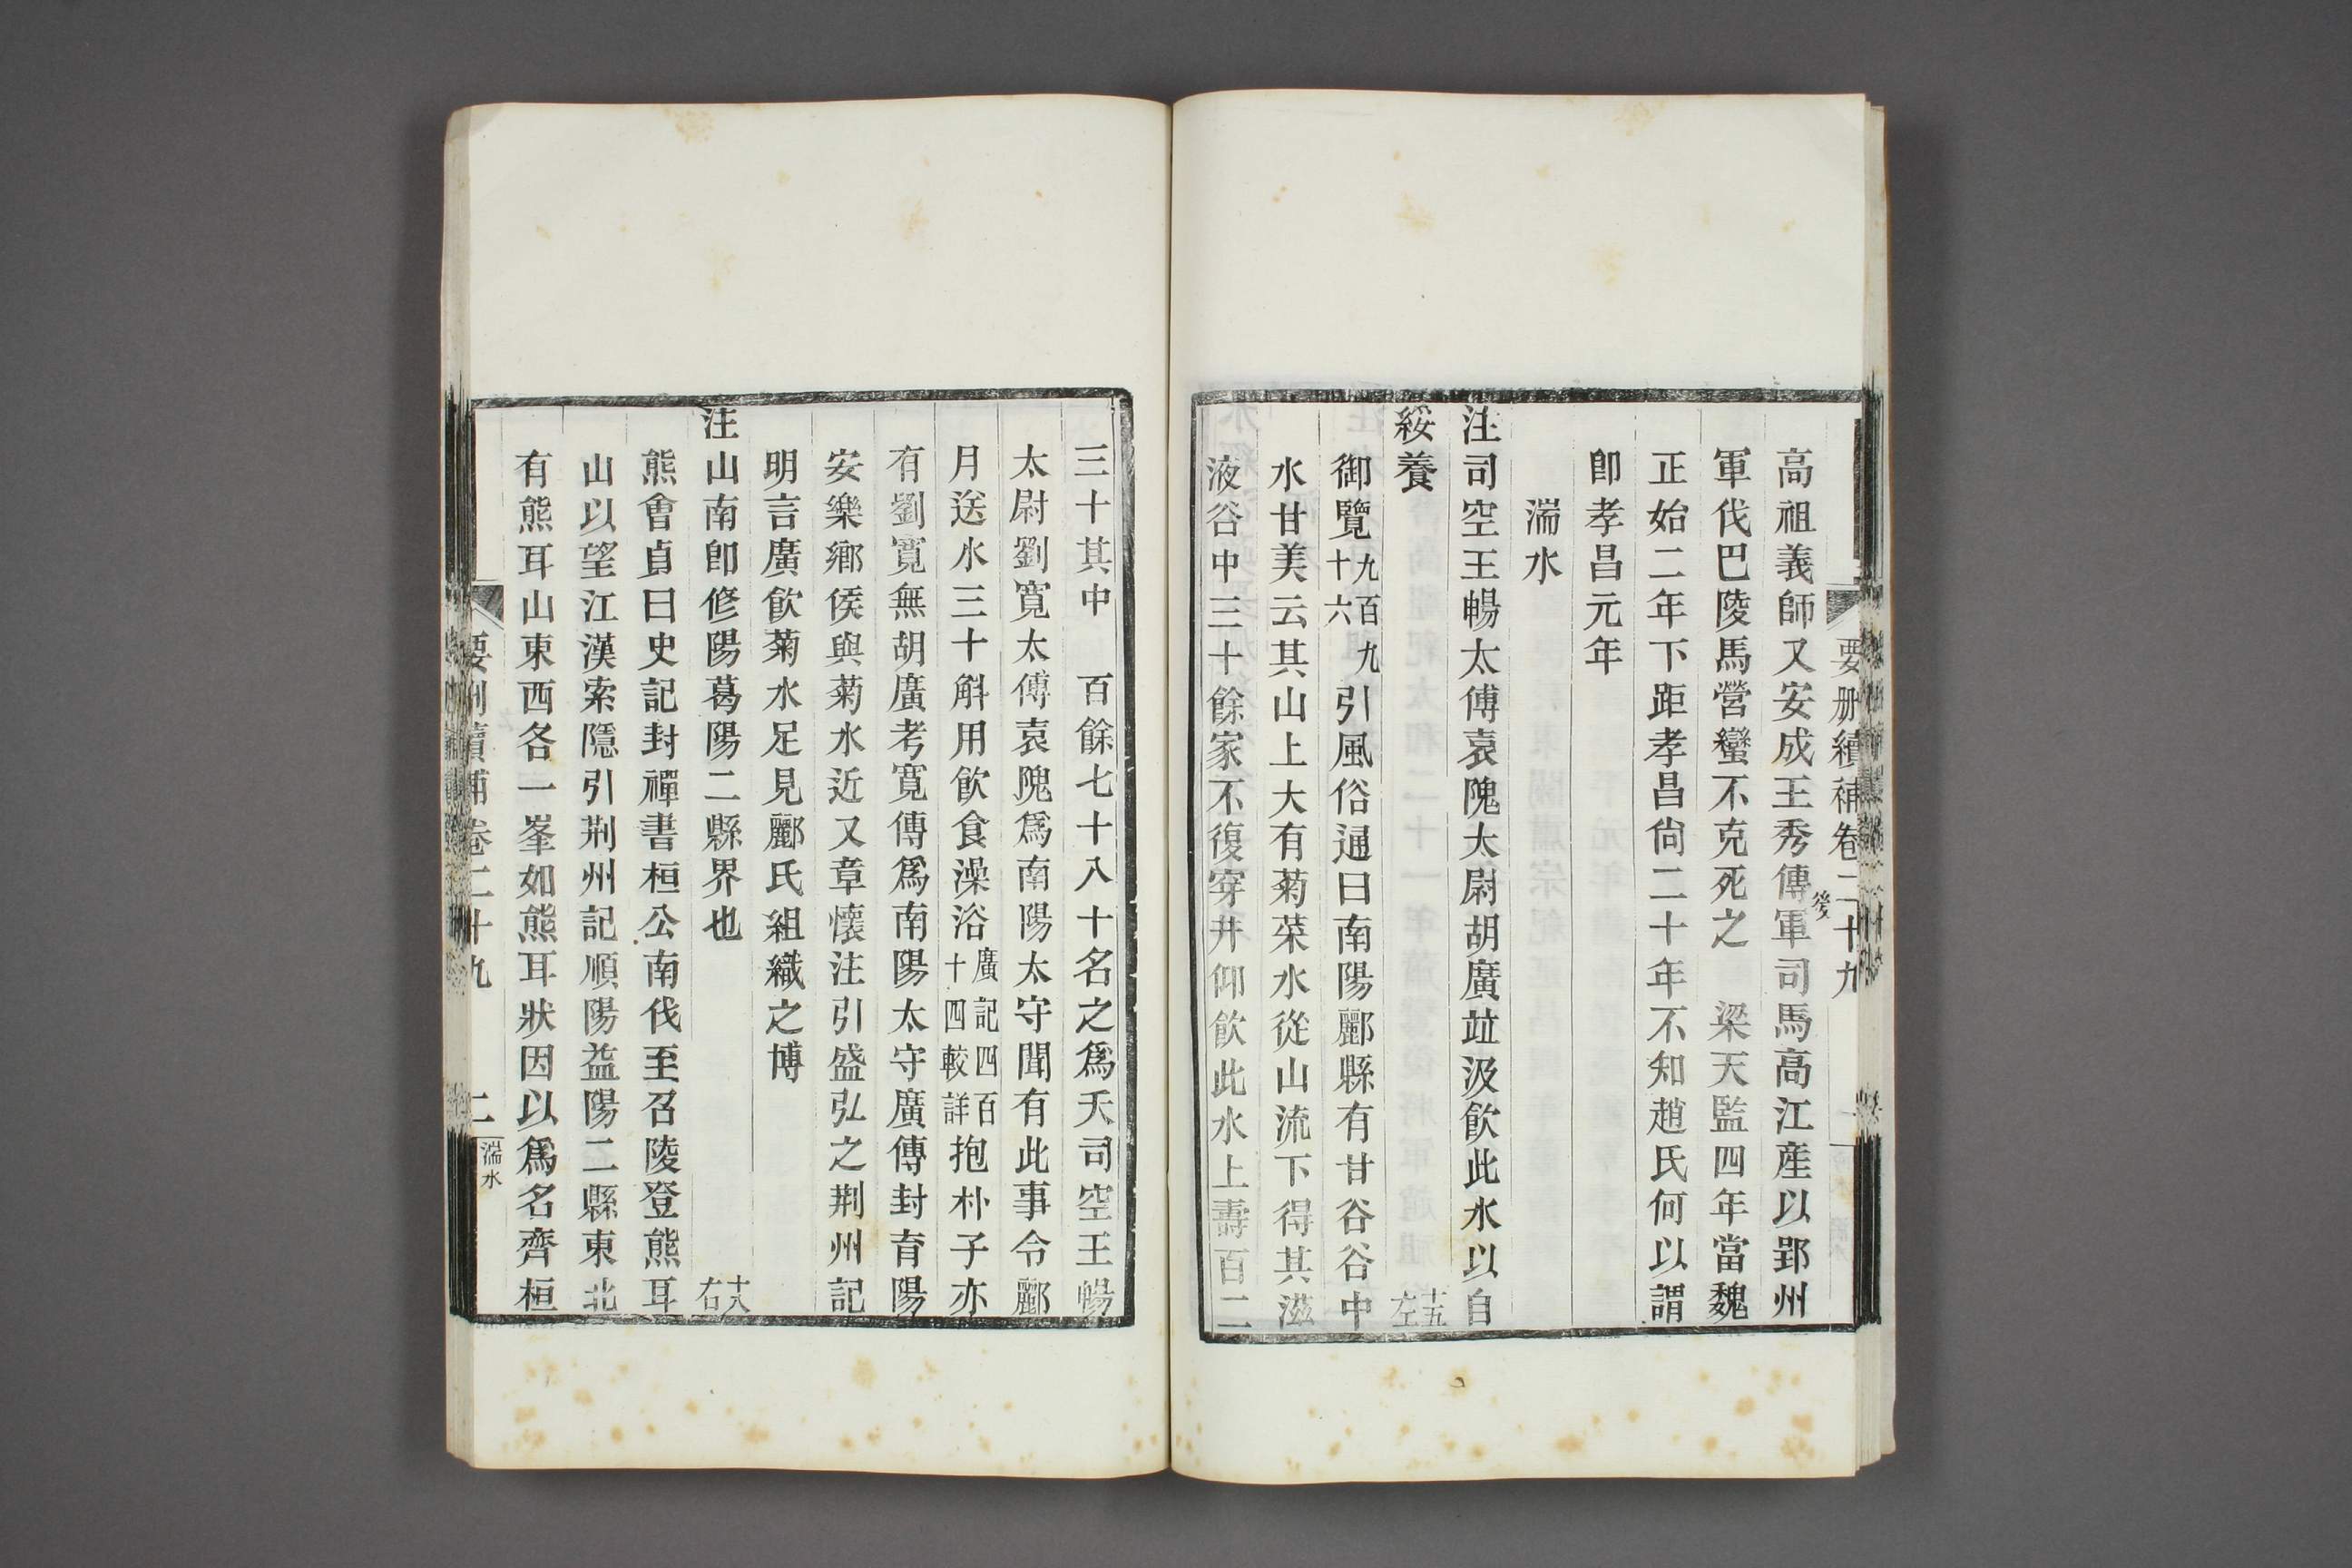 要删續補卷二十九
高祖義師又安成王秀傳後軍司馬高江產以郢州
軍伐巴陵馬營蠻不克死之　梁天監四年當魏
正始二年下距孝昌尙二十年不知趙氏何以謂
卽孝昌元年
湍水
注司空王暢太傅袁隗太尉胡廣竝汲飮此水以自
綏養　十五左
御覽九百九十六引風俗通曰南陽酈縣有甘谷谷中
水甘美云其山上大有菊菜水從山流下得其滋
液谷中三十餘家不復穿井仰飮此水上壽百二
三十其中　百餘七十八十名之爲夭司空王暢
太尉劉寬太傅袁隗爲南陽太守聞有此事令酈
月送水三十斛用飮食澡浴廣記四百十四較詳抱朴子亦
有劉寬無胡廣考寬傳爲南陽太守廣傳封育陽
安樂鄉侯與菊水近又章懷注引盛弘之荆州記
明言廣飮菊水足見酈氏組織之博
注山南卽修陽葛陽二縣界也　十八右
熊會貞曰史記封禪書桓公南伐至召陵登熊耳
山以望江漢索隱引荆州記順陽益陽二縣東北
有熊耳山東西各一峯如熊耳狀因以爲名齊桓
要删續補卷二十九　二　湍水